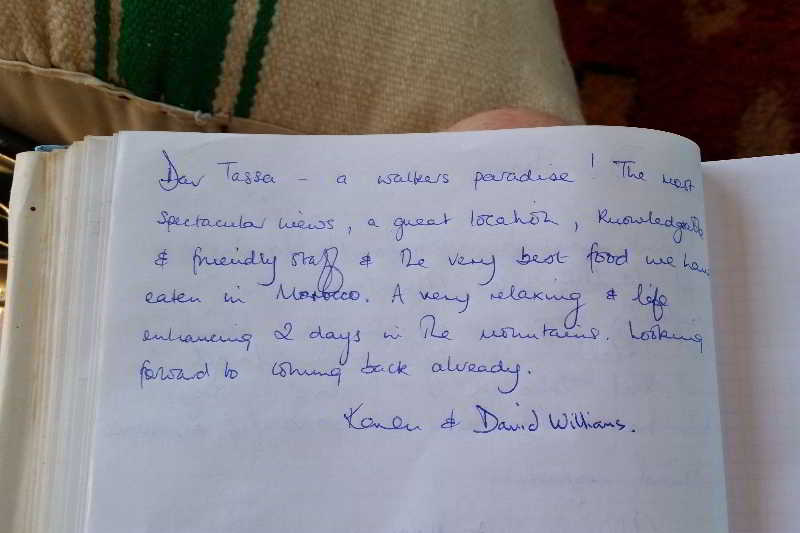 Dar Tassa - a walkers paradise! The most
spectacular views, a great location, knowledgeable
& friendly staff & the very best food we have
eaten in Morocco. A very relaxing & life
enhancing 2 days in the mountains. Looking
forward to coming back already.
Karen & David Williams.